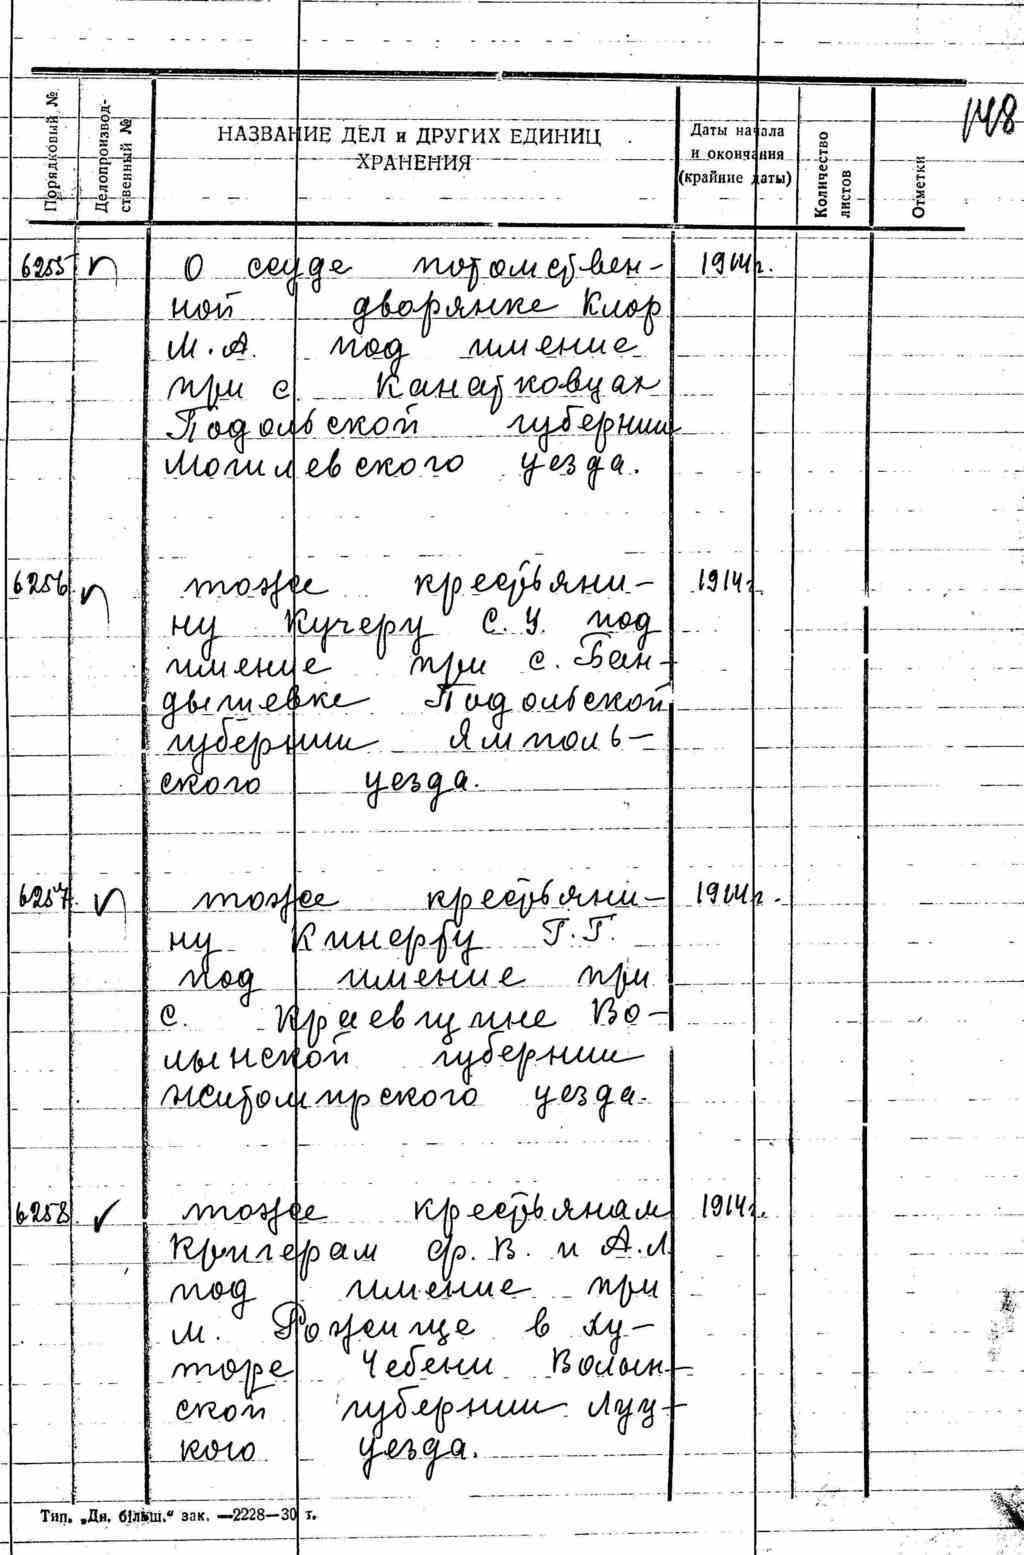 148
Порядковый №
Делопроизвод-
ственный №
НАЗВАНИЕ ДЕЛ и ДРУГИХ ЕДИНИЦ
ХРАНЕНИЯ
Даты начала
и окончания
(крайние даты)
Количество
листов
Отметки
6255 О ссуде потомствен- 1914г.
ной дворянке Клор
М.А. под имение
при с. Канатковцах
Подольской губернии
Могилевского уезда.
6256 тоже крестьяни- 1914г.
ну Кучеру С.У. под
имение при с. Бан-
дышевке Подольской
губернии Ямполь-
ского уезда.
6257. тоже крестьяни- 1914г.
ну Кинерту Г.Г.
под имение при
с. Краевщине Во-
лынской губернии
Житомирского уезда.
6258 ✓ тоже крестьянам 1914г.
Кригерам Ф.В. и А.Л.
под имение при
м. Рожище в ху-
торе Чебени Волын-
ской губернии Луц-
кого уезда.
Тип. „Дн. більш.“ зак. —2228—30 т.